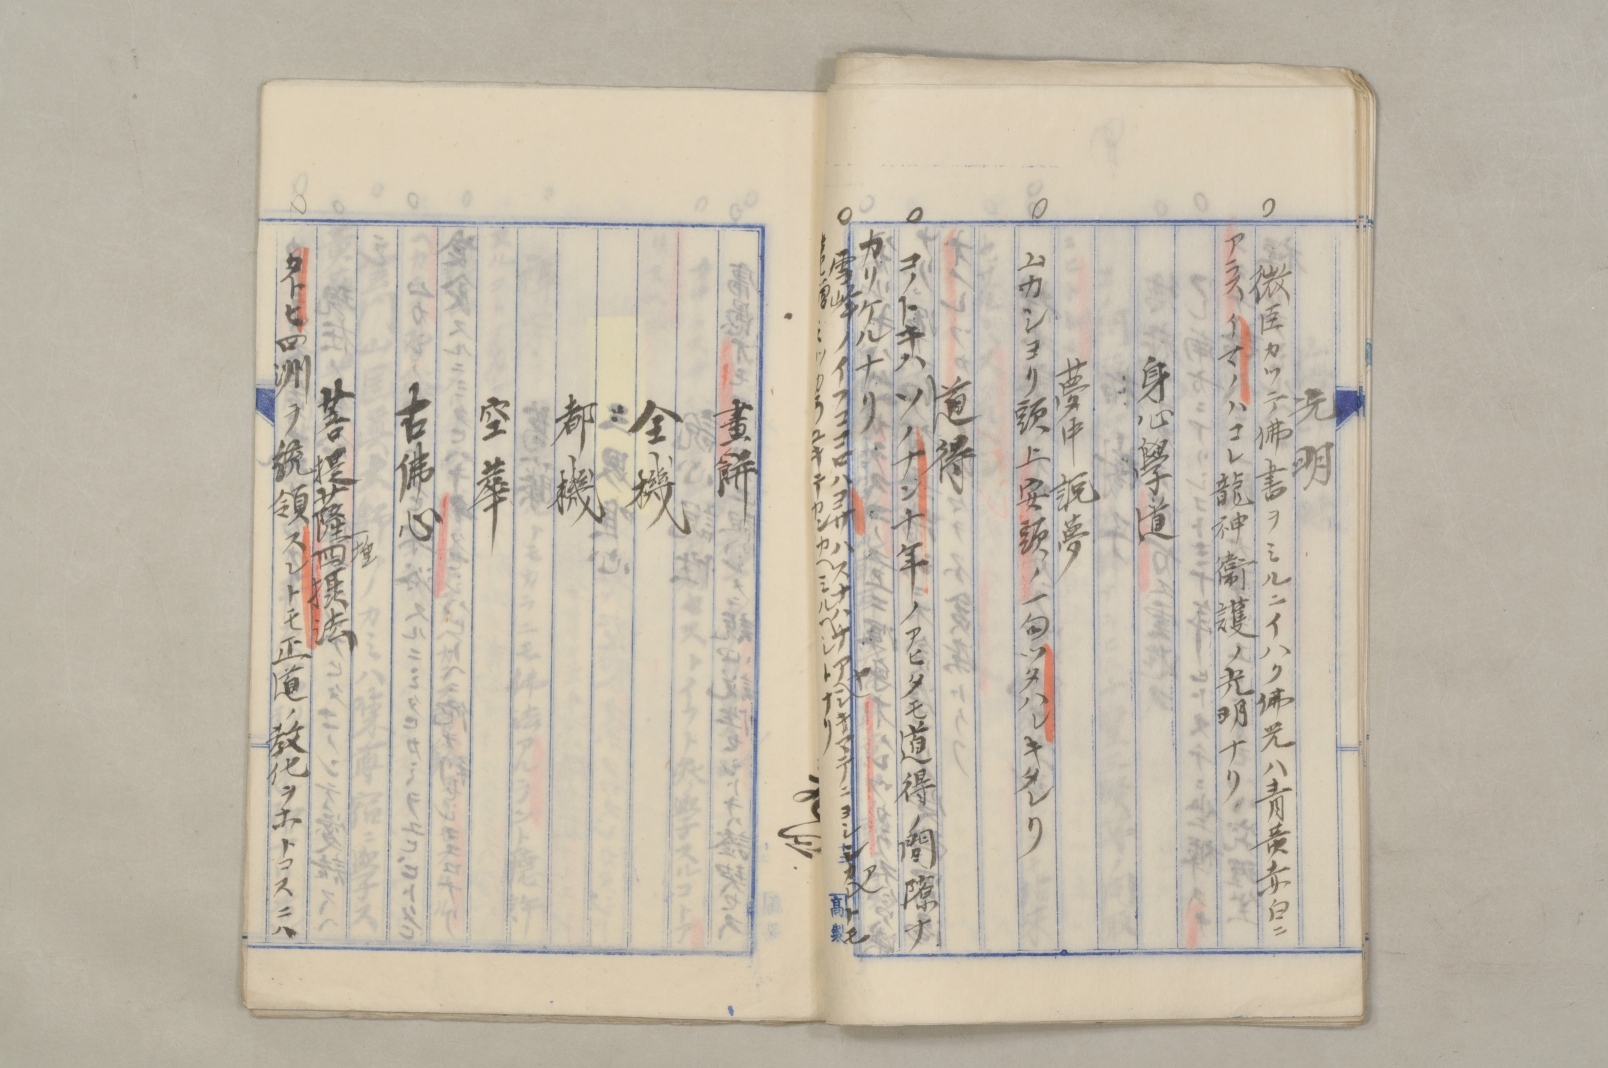 光明
微臣カツテ佛書ヲミルニイハク佛光ハ青黄赤白ニ
アラスイマノハコレ龍神衞護ノ光明ナリ
身心學道
夢中説夢
ムカシヨリ頭上安頭ノ一句ツタハレキタレリ
道得
コノトキハソノナンナ年ノアヒタモ道得ノ間隙ナ
カリケルナリ
雪峰ノイフココロハ
髙製
畫餅
全機
都機
空華
古佛心
菩提薩埵四摂法
タトヒ四洲ヲ統領スレトモ正道ノ教化ヲホトコスニハ